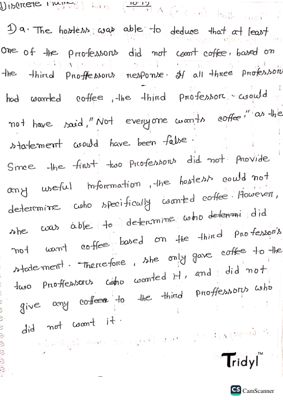 Discrete
1) a. The hostess was able to deduce that at least
one of the Professors did not want coffee. based on
the third Proffessors response. If all three Professors
had wanted coffee, the third Professor would
not have said, "Not everyone wants coffee," as the
statement would have been false.
Since the first two Professors did not Provide
any useful Information, the hostess could not
determine who specifically wanted coffee. However,
she was able to determine who did
not want coffee based on the third Professor's
statement. Therefore, she only gave coffee to the
two Professors who wanted it, and did not
give any coffee to the third Proffessors who
did not want it.
Tridyl™
CS CamScanner